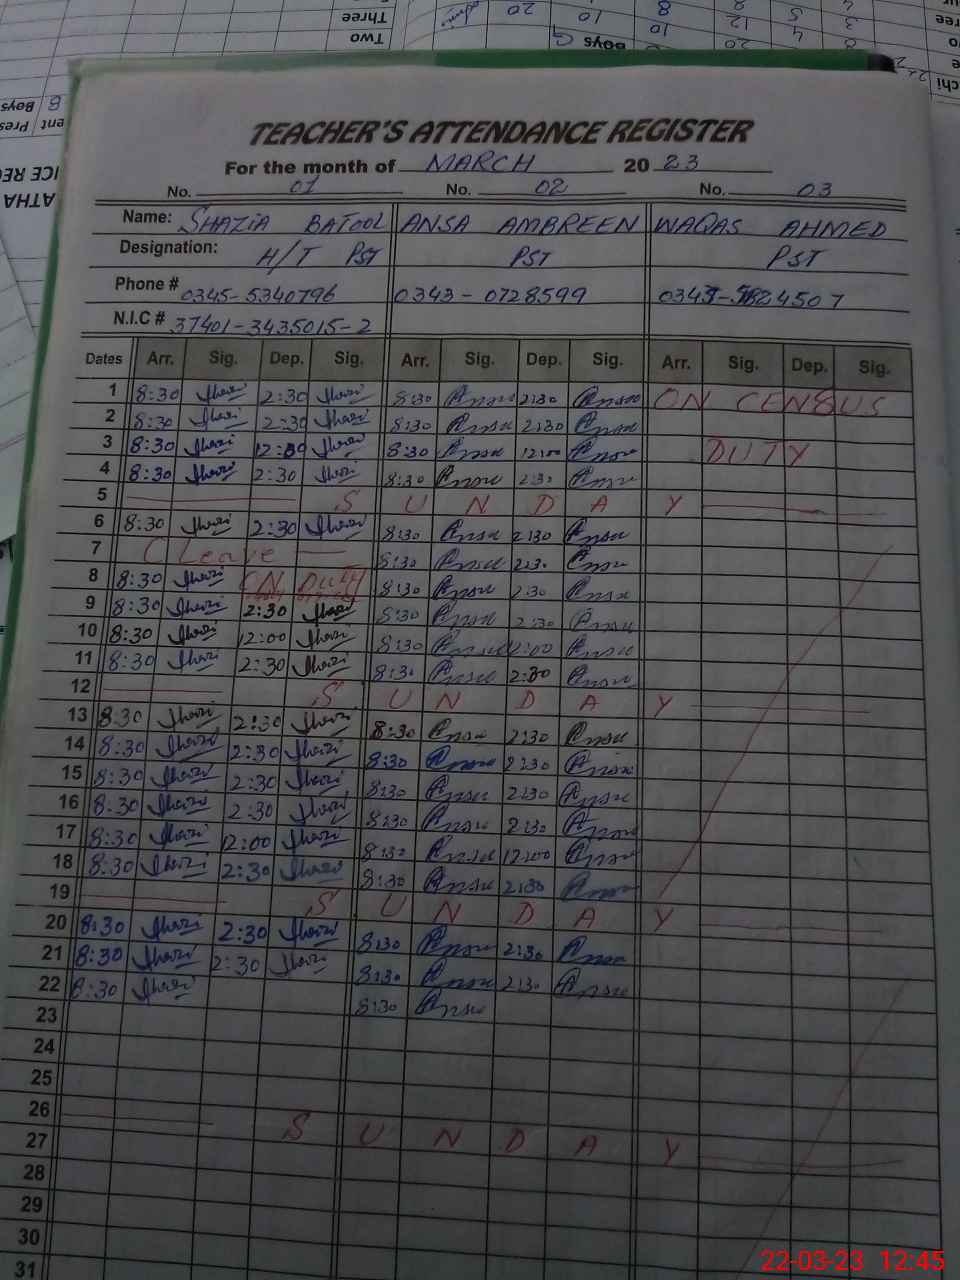 Three
Two
Boys
TEACHER'S ATTENDANCE REGISTER
For the month of MARCH 2023
No. 01 No. 02 No. 03
Name: SHAZIA BATOOL ANSA AMBREEN WAQAS AHMED
Designation: H/T PST PST PST
Phone # 0345-5340796 0343-0728599
N.I.C # 37401-3435015-2
Dates Arr. Sig. Dep. Sig. Arr. Sig. Dep. Sig. Arr. Sig. Dep. Sig.
1 8:30 Shazi 2:30 Shazi 8:30 Ansa 2:30 Ansa ON CENSUS
2 8:30 Shazi 2:30 Shazi 8:30 Ansa 2:30 Ansa
3 8:30 Shazi 12:00 Shazi 8:30 Ansa 12:00 Ansa DUTY
4 8:30 Shazi 2:30 Shazi 8:30 Ansa 2:30 Ansa
5 SUNDAY
6 8:30 Shazi 2:30 Shazi 8:30 Ansa 2:30 Ansa
7 C Leave 8:30 Ansa 2:30 Ansa
8 8:30 Shazi ON DUTY 8:30 Ansa 2:30 Ansa
9 8:30 Shazi 2:30 Shazi 8:30 Ansa 2:30 Ansa
10 8:30 Shazi 12:00 Shazi 8:30 Ansa 12:00 Ansa
11 8:30 Shazi 2:30 Shazi 8:30 Ansa 2:30 Ansa
12 SUNDAY
13 8:30 Shazi 2:30 Shazi 8:30 Ansa 2:30 Ansa
14 8:30 Shazi 2:30 Shazi 8:30 Ansa 2:30 Ansa
15 8:30 Shazi 2:30 Shazi 8:30 Ansa 2:30 Ansa
16 8:30 Shazi 2:30 Shazi 8:30 Ansa 2:30 Ansa
17 8:30 Shazi 12:00 Shazi 8:30 Ansa 12:00 Ansa
18 8:30 Shazi 2:30 Shazi 8:30 Ansa 2:30 Ansa
19 SUNDAY
20 8:30 Shazi 2:30 Shazi 8:30 Ansa 2:30 Ansa
21 8:30 Shazi 2:30 Shazi 8:30 Ansa 2:30 Ansa
22 8:30 Shazi 8:30 Ansa
23
24
25
26 SUNDAY
27
28
29
30
31
22-03-23 12:45